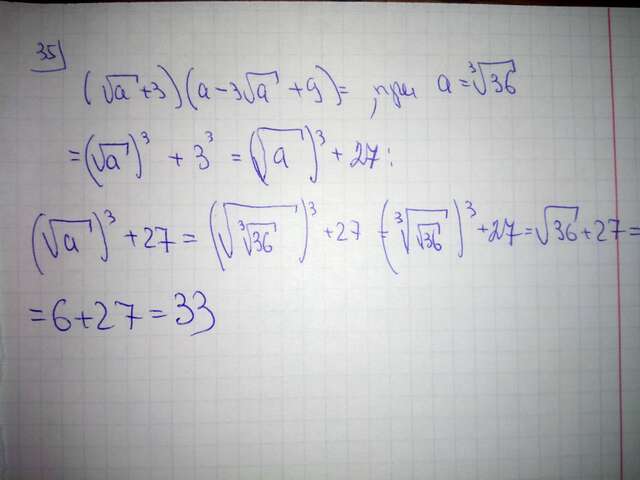 35
(√a + 3)(a - 3√a + 9) = при a = ∛36
= (√a)³ + 3³ = (√a)³ + 27;
(√a)³ + 27 = (√∛36)³ + 27 = (∛√36)³ + 27 = √36 + 27 =
= 6 + 27 = 33